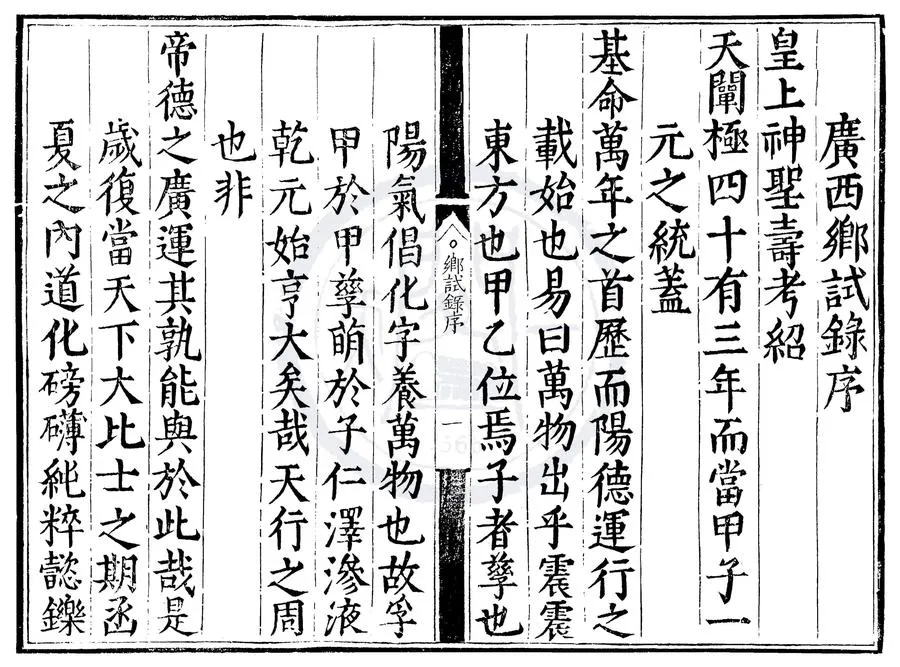 廣西鄉試錄序
皇上神聖壽考紹
天闡極四十有三年而當甲子一
元之統蓋
基命萬年之首歷而陽德運行之
載始也易曰萬物出乎震震
東方也甲乙位焉子者孳也
鄉試錄序 一
陽氣倡化字養萬物也故孚
甲於甲孳萌於子仁澤滲液
乾元始亨大矣哉天行之周
也非
帝德之廣運其孰能與於此哉是
歲復當天下大比士之期函
夏之內道化磅礴純粹懿鑠